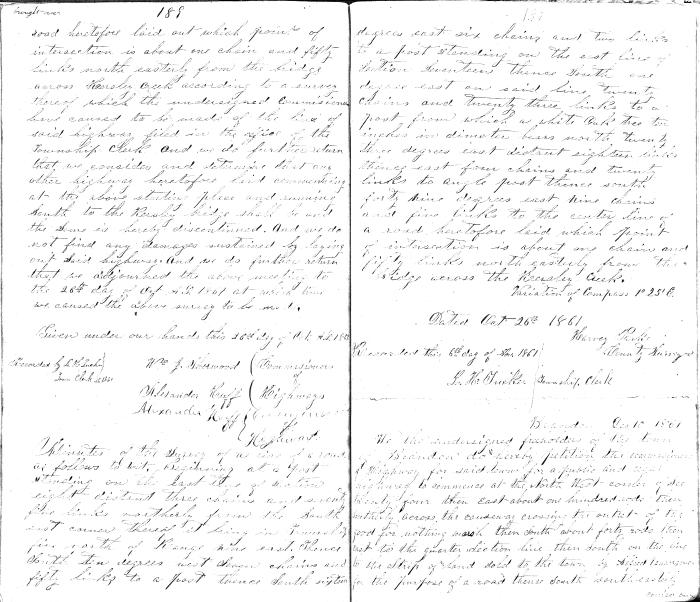 189
road heretofore laid out which point of
intersection is about one chain and fifty
links north easterly from the bridge
across Kersley Creek according to a survey
thereof which the undersigned Commissioners
have caused to be made of the line of
said highway filed in the office of the
Township Clerk And we do further return
that we consider and determine that any
other highway heretofore laid commencing
at the above starting place and running
South to the Kersley bridge shall be and
the same is hereby discontinued. And we do
not find any damages sustained by laying
out said highway. And we do further return
that we adjourned the above meeting to
the 26th day of Oct A.D. 1861 at which time
we caused the above survey to be made.
Given under our hands this 26th day of Oct A.D. 1861
Recorded by L. H.
Town Clerk
Wm J. Commissioners
of
Alexander Highways
Alexander
of
Highways
Minutes of the Survey of a line of a road
as follows to wit, beginning at a post
standing on the East line of section
eight distant three chains and seventy
five links northerly from the South
east corner thereof it being in Township
five north of Range nine east, thence
South ten degrees west seven chains and
fifty links to a post thence South sixteen
degrees east six chains and two links
to a post standing on the east line of
Section Seventeen thence South one
degree east on said line twenty
chains and twenty three links to a
post from which a white Oak tree ten
inches in diameter bears north twenty
three degrees east distant eighteen links
thence east four chains and twenty
links to angle post thence south
forty nine degrees east nine chains
and five links to the center line of
a road heretofore laid which point
of intersection is about one chain and
fifty links north easterly from the
bridge across the Kersley Creek.
Variation of Compass 1° 25' E.
Dated Oct 26th 1861
Harvey Parke
County Surveyor
Recorded this 6th day of Nov 1861
L. H. Township Clerk
Brandon Dec 10 1861
We the undersigned freeholders of the town
of Brandon do hereby petition the commissioners
of Highway for said town for a public and legal
highway to commence at the North West corner of Sec
twenty four then east about one hundred rods then
northerly across the causeway crossing the outlet of the
good for nothing marsh then South about forty rods then
east to the quarter section line then south on the line
to the strip of land sold to the town by
for the purpose of a road thence South south easterly